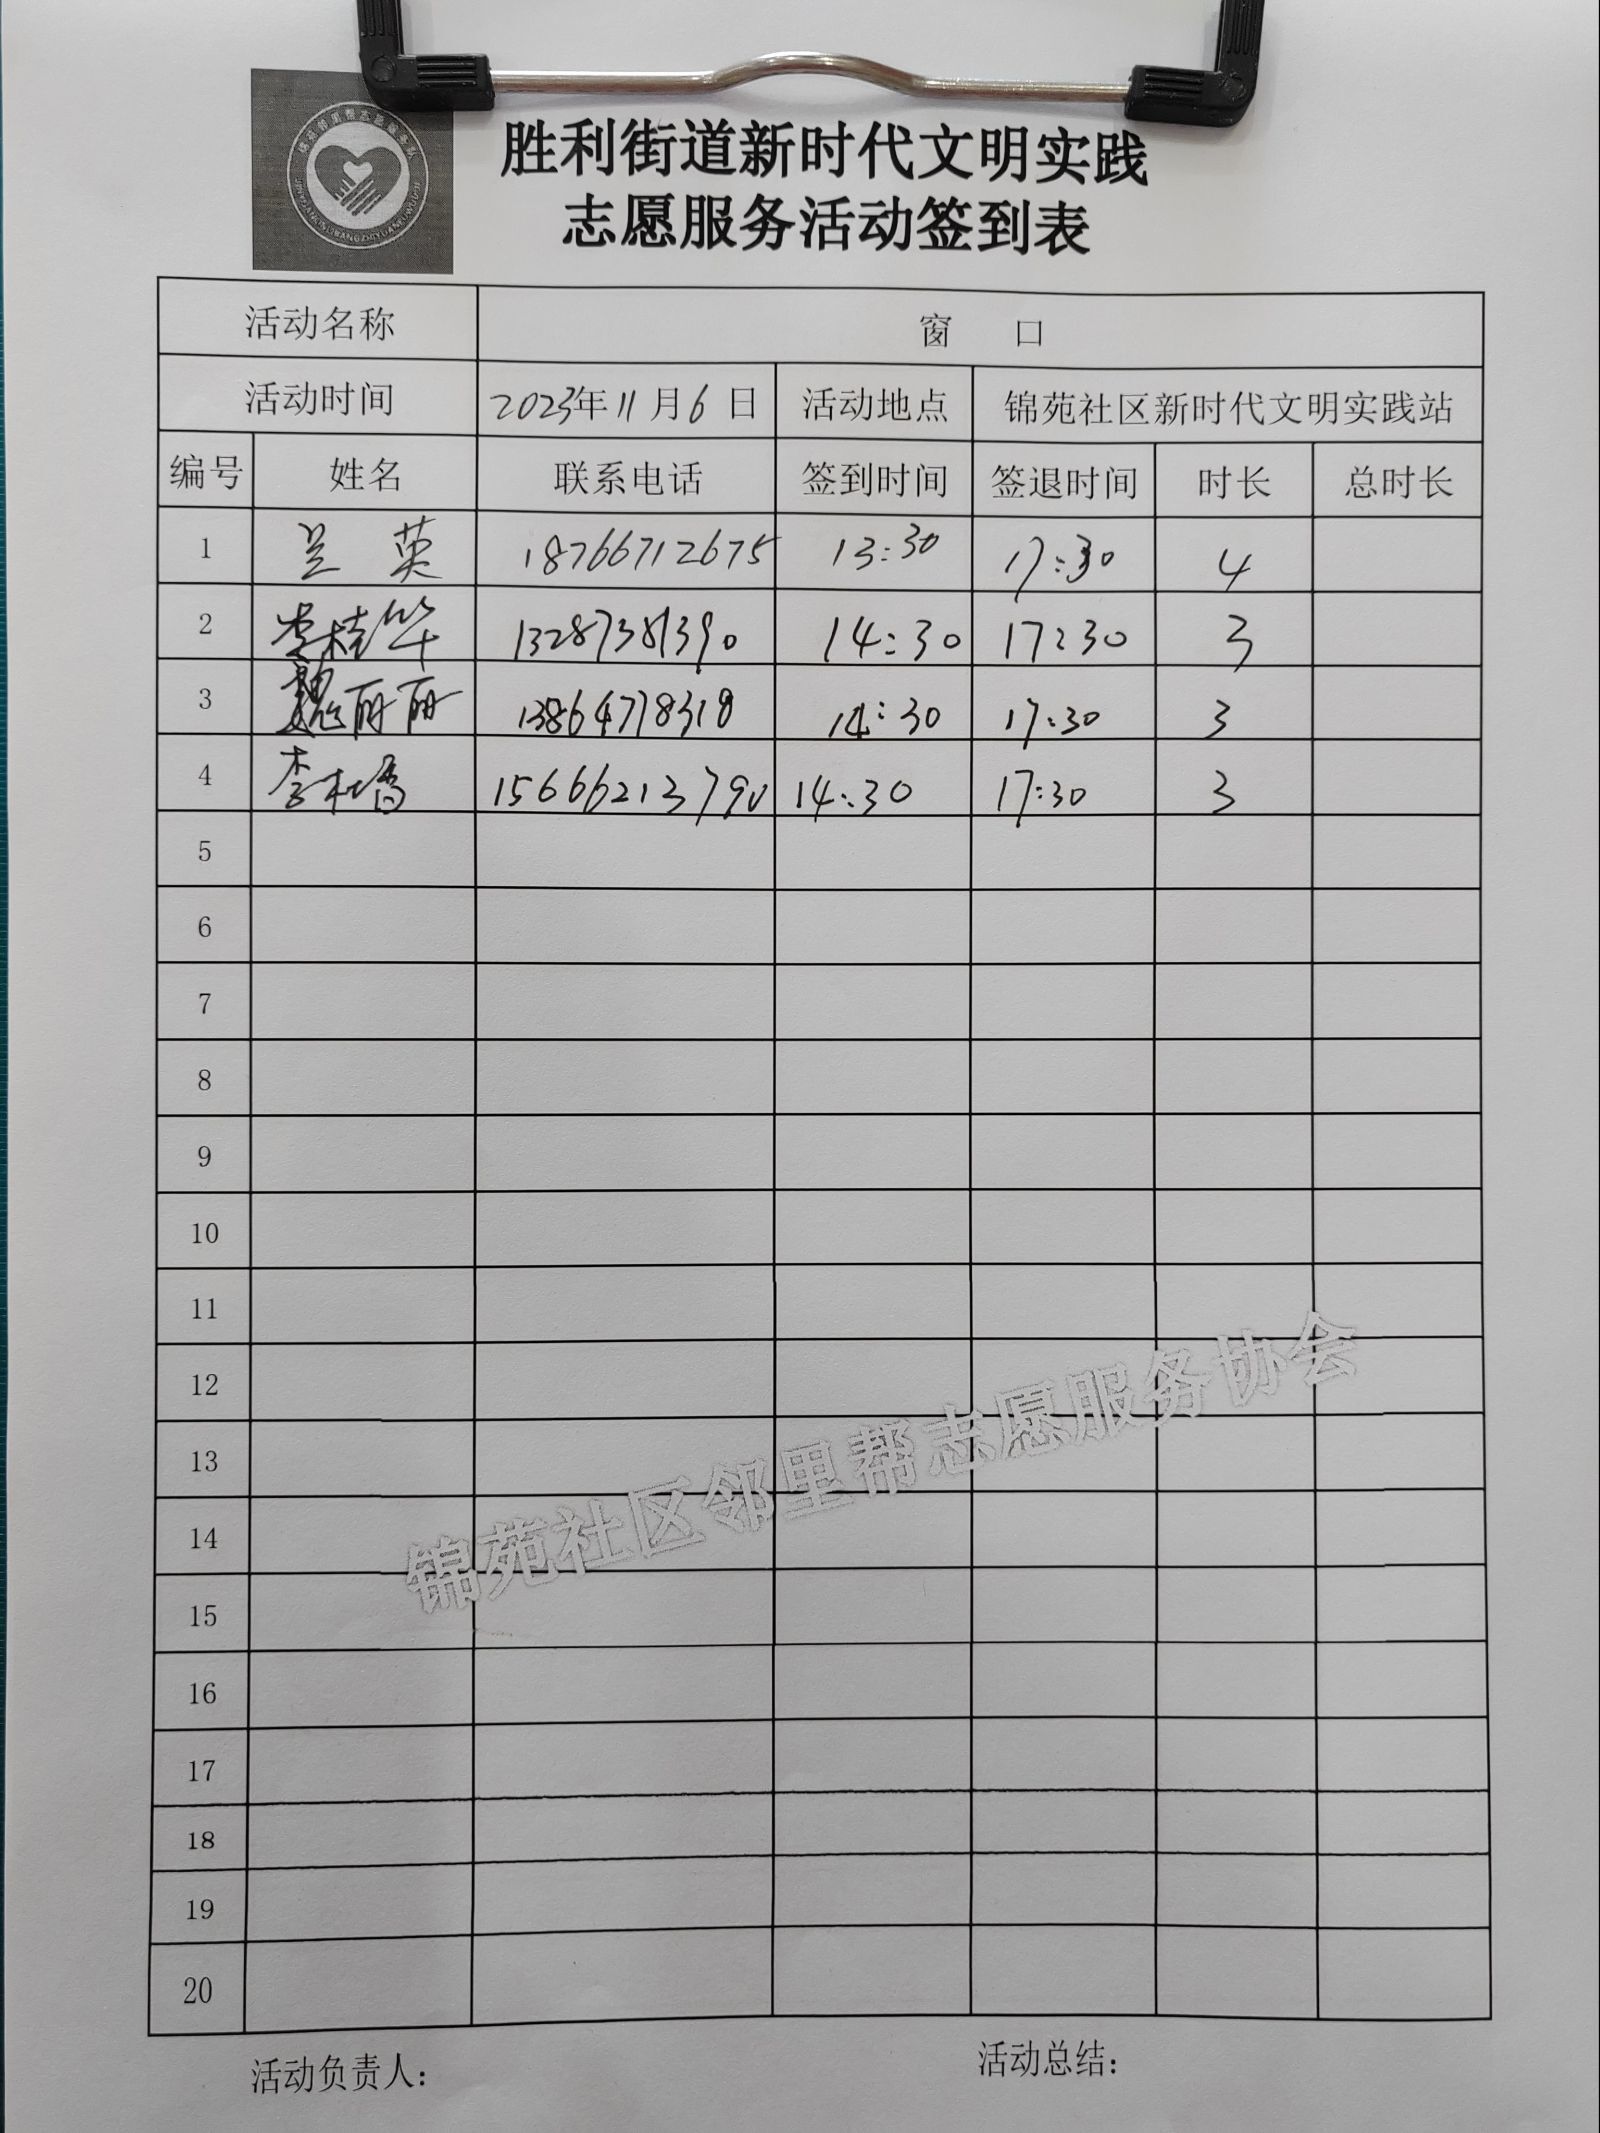 胜利街道新时代文明实践
志愿服务活动签到表
活动名称 窗 口
活动时间 2023年11月6日 活动地点 锦苑社区新时代文明实践站
编号 姓名 联系电话 签到时间 签退时间 时长 总时长
1 兰英 18766712675 13:30 17:30 4
2 李桂华 13287381390 14:30 17:30 3
3 魏丽丽 13864778318 14:30 17:30 3
4 李 14:30 17:30 3
5
6
7
8
9
10
11
12
13
14
15
16
17
18
19
20
锦苑社区邻里帮志愿服务协会
活动负责人： 活动总结：